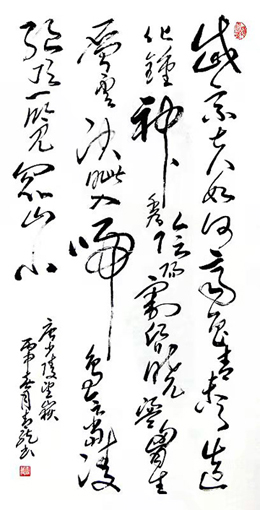 岱宗夫如何齊魯青未了造
化鍾神秀陰陽割昏曉盪胸生
層雲決眥入歸鳥會當凌
絕頂一覽眾山小
唐少陵望嶽
丙申